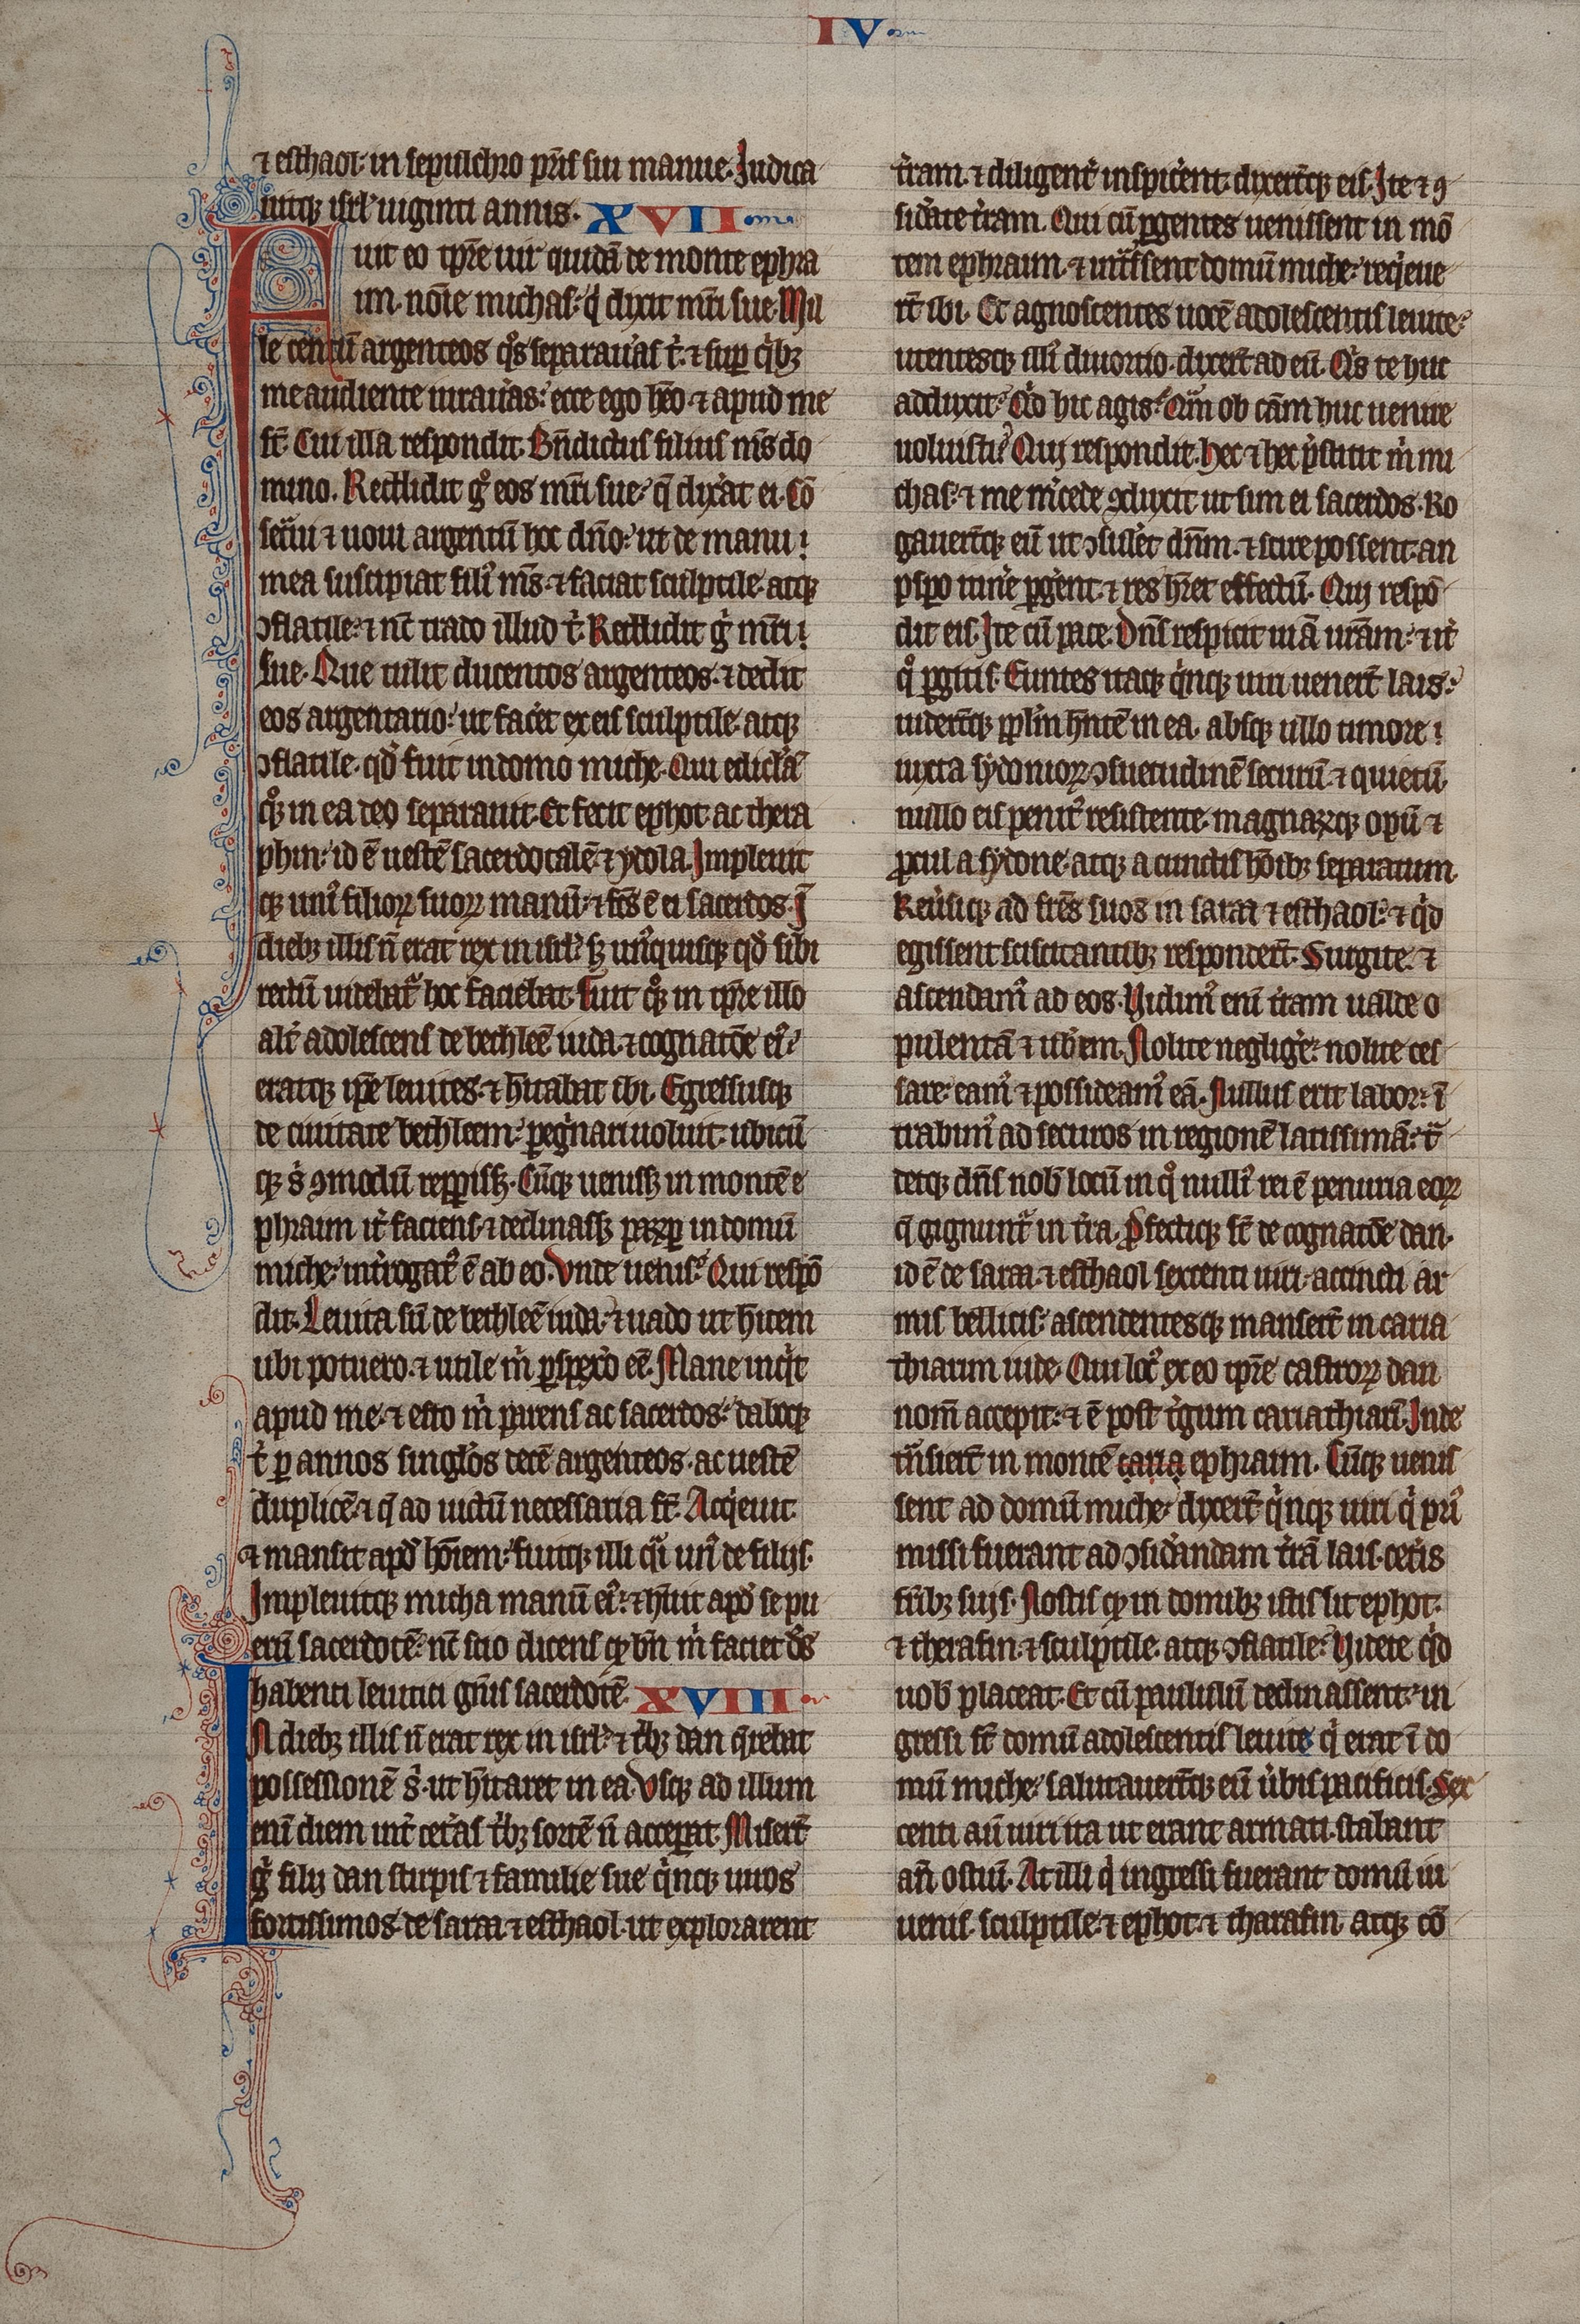 IV
⁊ esthaol· in sepulchro pr̄is sui manue. Judica
uitq; isrl̓ uiginti annis. XVII
Fuit eo tp̄re uir quidā de monte ephra
im. noīe michas· q̇ dixit mr̄i sue. Mil
le centū argenteos q̊s separaueras t̓· ⁊ sup̱ qⁱb;
me audiente iurau̓as· ecce ego h̄eo ⁊ apud me
st̄. Cui illa respondit. Bn̄dictus filius m̄s do
mino. Reddidit g̊ eos mr̄i sue· q̄ dix̓at ei. Cō
secͣui ⁊ uoui argentū hoc dn̄o· ut de manu
mea suscipiat fili᷒ m̄s· ⁊ faciat sculptile atq;
ↄflatile· ⁊ nc̄ trado illud t̓. Reddidit gͥ mr̄i
sue. Que tulit ducentos argenteos· ⁊ dedit
eos argentario· ut fac̓et ex eis sculptile atq;
ↄflatile· qd̓ fuit in domo miche. Qui edic̓lā
q̊; in ea deo separauit. Et fecit ephot ac thera
phin· id ē uestē sacerdotalē ⁊ ydola. Impleuit
q; uni᷒ filioꝝ suoꝝ manū· ⁊ fc̄s ē ei sacerdos. Ī
dieb; illis n̄ erat rex in isrl̓· s; un᷒quisq; qd̓ sibi
rectū uidebat᷑ hoc faciebat. Fuit q̊; in tp̄re illo
alt̓ adolescens de bethleē iuda· ⁊ cognatōe ei᷒·
eratq; ip̄e leuites· ⁊ h̄itabat ibi. Egressusq;
de ciuitate bethleem· peg̓nari uoluit· ubicū
q; s̓ ꝯmodū repperiss;. Cūq; ueniss; in montē e
phraim it̓ faciens ⁊ declinass; paꝝꝑ in domū
miche· int̓rogat᷒ ē ab eo. Vnde uenis? Qui respō
dit. Leuita sū de bethleē iuda· ⁊ uado ut h̄item
ubi potuero· ⁊ utile m̓ ꝑspex̓o eē. Mane inqⁱt
apud me· ⁊ esto m̓ parens ac sacerdos· daboq;
t̓ ꝑ annos singl̓os decē argenteos· ac uestē
duplicē· ⁊ q̄ ad uictū necessaria st̄. Acqⁱeuit
⁊ mansit apd̓ hōiem· fuitq; illi qͣi un᷒ de filijs.
Impleuitq; micha manū ei᷒· ⁊ h̄uit apd̓ se pu
erū sacerdotē· nc̄ scio dicens qꝫ bn̄ m̓ faciet ds̄
habenti leuitici gn̄is sacerdotē. XVIII
In dieb; illis n̄ erat rex in isrl̓· ⁊ tͥb; dan q̄rebat
possessionē s̓· ut h̄itaret in ea. Vsq; ad illum
enī diem int̓ cet̓as tͥb; sortē n̄ acceperat. Miser̄t
gͥ filij dan stirpis ⁊ familie sue qⁱnq; uiros
fortissimos· de saraa ⁊ esthaol· ut explorarent
t̓ram· ⁊ diligent̓ inspic̓ent· dixer̄tq; eis. Ite ⁊ ꝯ
sid̓ate t̓ram. Qui cū ꝑgentes uenissent in mō
tem ephraim· ⁊ int̓ssent domū miche· reqⁱeue
rt̄ ibi. Et agnoscentes uocē adolescentis leuite·
utentesq; illi᷒ diuorio· dixer̄t ad eū. Qⁱs te huc
adduxit? Qⁱd hic agis? Qͣm ob cām huc uenire
uoluisti? Qui respondit. Hec ⁊ hec p̓stitit m̓ mi
chas· ⁊ me m̓cede ꝯduxit ut sim ei sacerdos. Ro
gauer̄tq; eū ut ↄsul̓et dn̄m· ⁊ scire possent· an
ꝓspo itin̓e ꝑg̓ent· ⁊ res h̄ret effectū. Qui respō
dit eis. Ite cū pace. Dn̄s respicit uiā ur̄am· ⁊ it̓
q̊ ꝑgitis. Euntes itaq; qⁱnq; uiri uener̄t lais·
uider̄tq; ppl̄m h̄ntē in ea· absq; ullo timore
iuxta sydonioꝝ ↄsuetudinē securū ⁊ quietū
nullo eis penit᷒ resistente· magnaꝝq; opū ⁊
ꝓcul a sydone atq; a cunctis hōib; separatum.
Reu̓siq; ad fr̄es suos in saraa ⁊ esthaol· ⁊ qⁱd
egissent sciscitantib; responder̄t. Surgite· ⁊
ascendam᷒ ad eos. Vidim᷒ enī t̓ram ualde o
pulentā ⁊ ub̓em. Nolite neglig̓e· nolite ces
sare· eam᷒ ⁊ possideam᷒ eā. Nullus erit labor· ī
trabim᷒ ad securos in regionē latissimā· t̓
detq; dn̄s nob̄ locū in q̊ nulli᷒ rei ē penuria eoꝝ
q̄ gignunt᷑ in t̓ra. Ꝓfectiq; st̄ de cognatōe dan·
id ē de saraa ⁊ esthaol sexcenti uiri· accincti ar
mis bellicis· ascendentesq; manser̄t in caria
thiarim iude. Qui loc᷒ ex eo tp̄re castroꝝ dan
nom̄ accepit· ⁊ ē post t̓gum cariathiarī. Inde
tͣnsier̄t in montē caria ephraim. Cūq; uenis
sent ad domū miche· dixer̄t qⁱnq; uiri qⁱ pri᷒
missi fuerant ad ↄsid̓andam t̓rā lais· cet̓is
fr̄ib; suis. Nostis qꝫ in domib; istis sit ephot·
⁊ therafin· ⁊ sculptile· atq; ↄflatile? Videte qⁱd
uob̄ placeat. Et cū paululū declinassent· in
gressi st̄ domū adolescentis leuite qⁱ erat ī do
mū miche· salutauer̄tq; eū u̓bis pacificis. Sex
centi aū uiri ita ut erant armati· stabant
an̄ ostiū. At illi qⁱ ingressi fuerant domū iu
uenis· sculptile· ⁊ ephot· ⁊ tharafin atq; cō